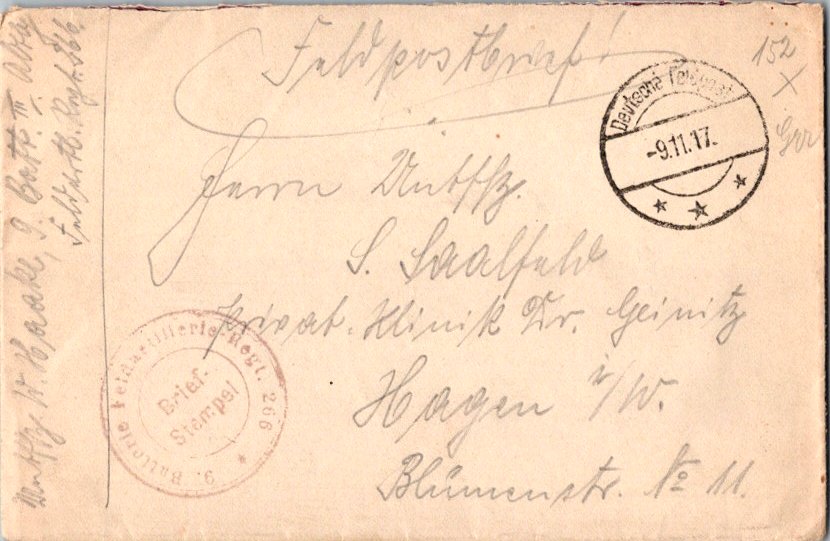 Feldpostbrief!
152
X
Deutsche Feldpost
-9.11.17.
Herrn Untffz.
S. Saalfeld
Privat-Klinik Dr. Geinitz
Hagen i/W.
Blumenstr. No 11.
9. Batterie Feldartillerie-Regt. 266
Brief-
Stempel
Untffz. W. Haake, 9. Batt. III. Abtg
Feldartl. Regt. 266.